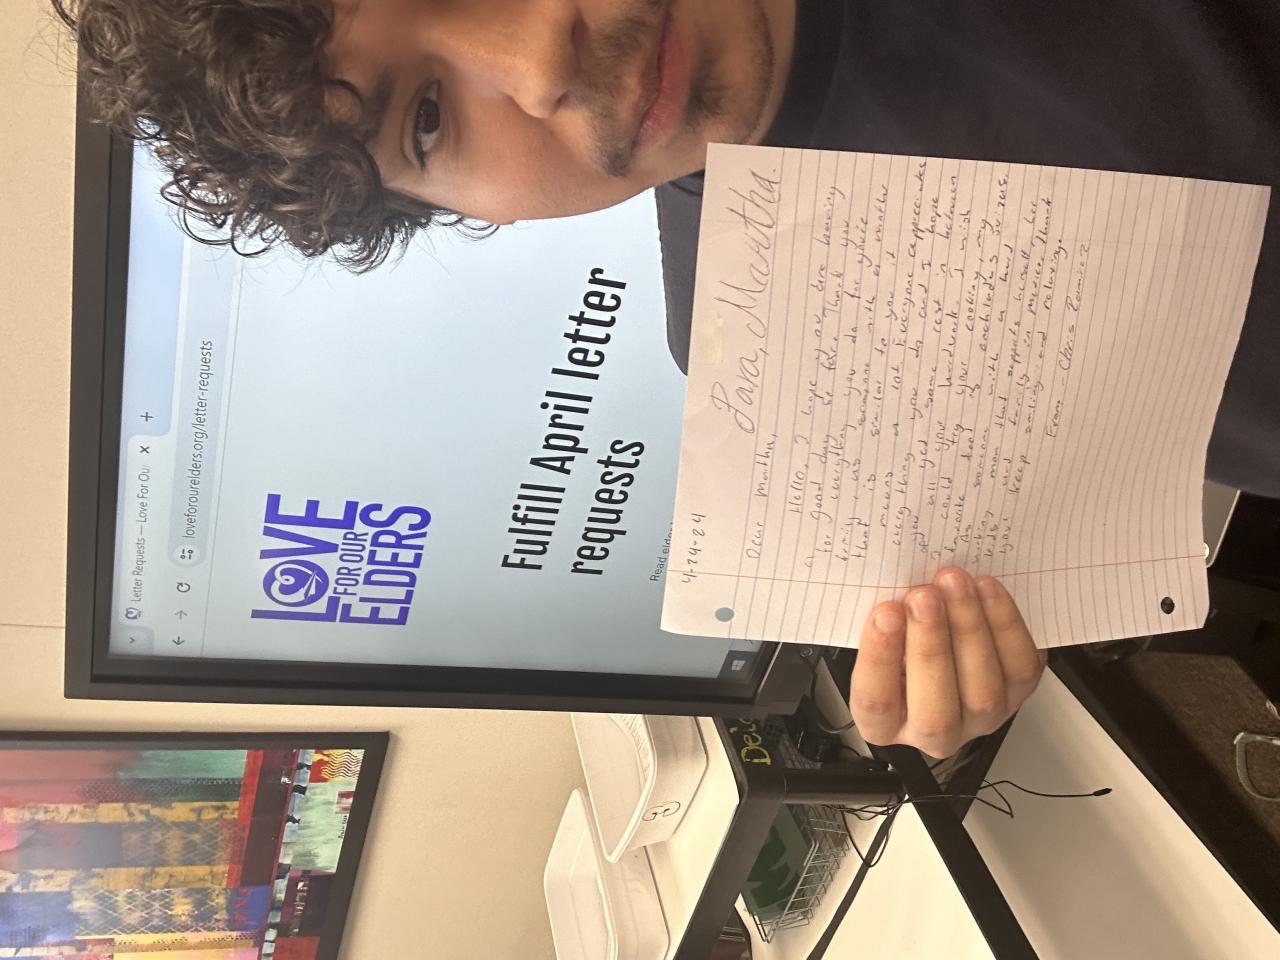 Letter Requests — Love For Ou
loveforourelders.org/letter-requests
LOVE
FOR OUR
ELDERS
Fulfill April letter
requests
Read elder
4-24-24
Para, Martha.
Dear Martha,
Hello, I hope you are having
good day so far. Thank you
everything you do for you're
family and someone with a
that is similar to you it
means a lot. Everyone appreciates
every thing you do and I hope
you all get some rest in between
all your hardwork. I wish
I could try your cooking, my
favorite food is enchiladas suizas.
As someone with a hard
working mom that supports herself, her
kids, and family in mexico, thank
you! Keep smiling and relaxing.
From - Chris Ramirez